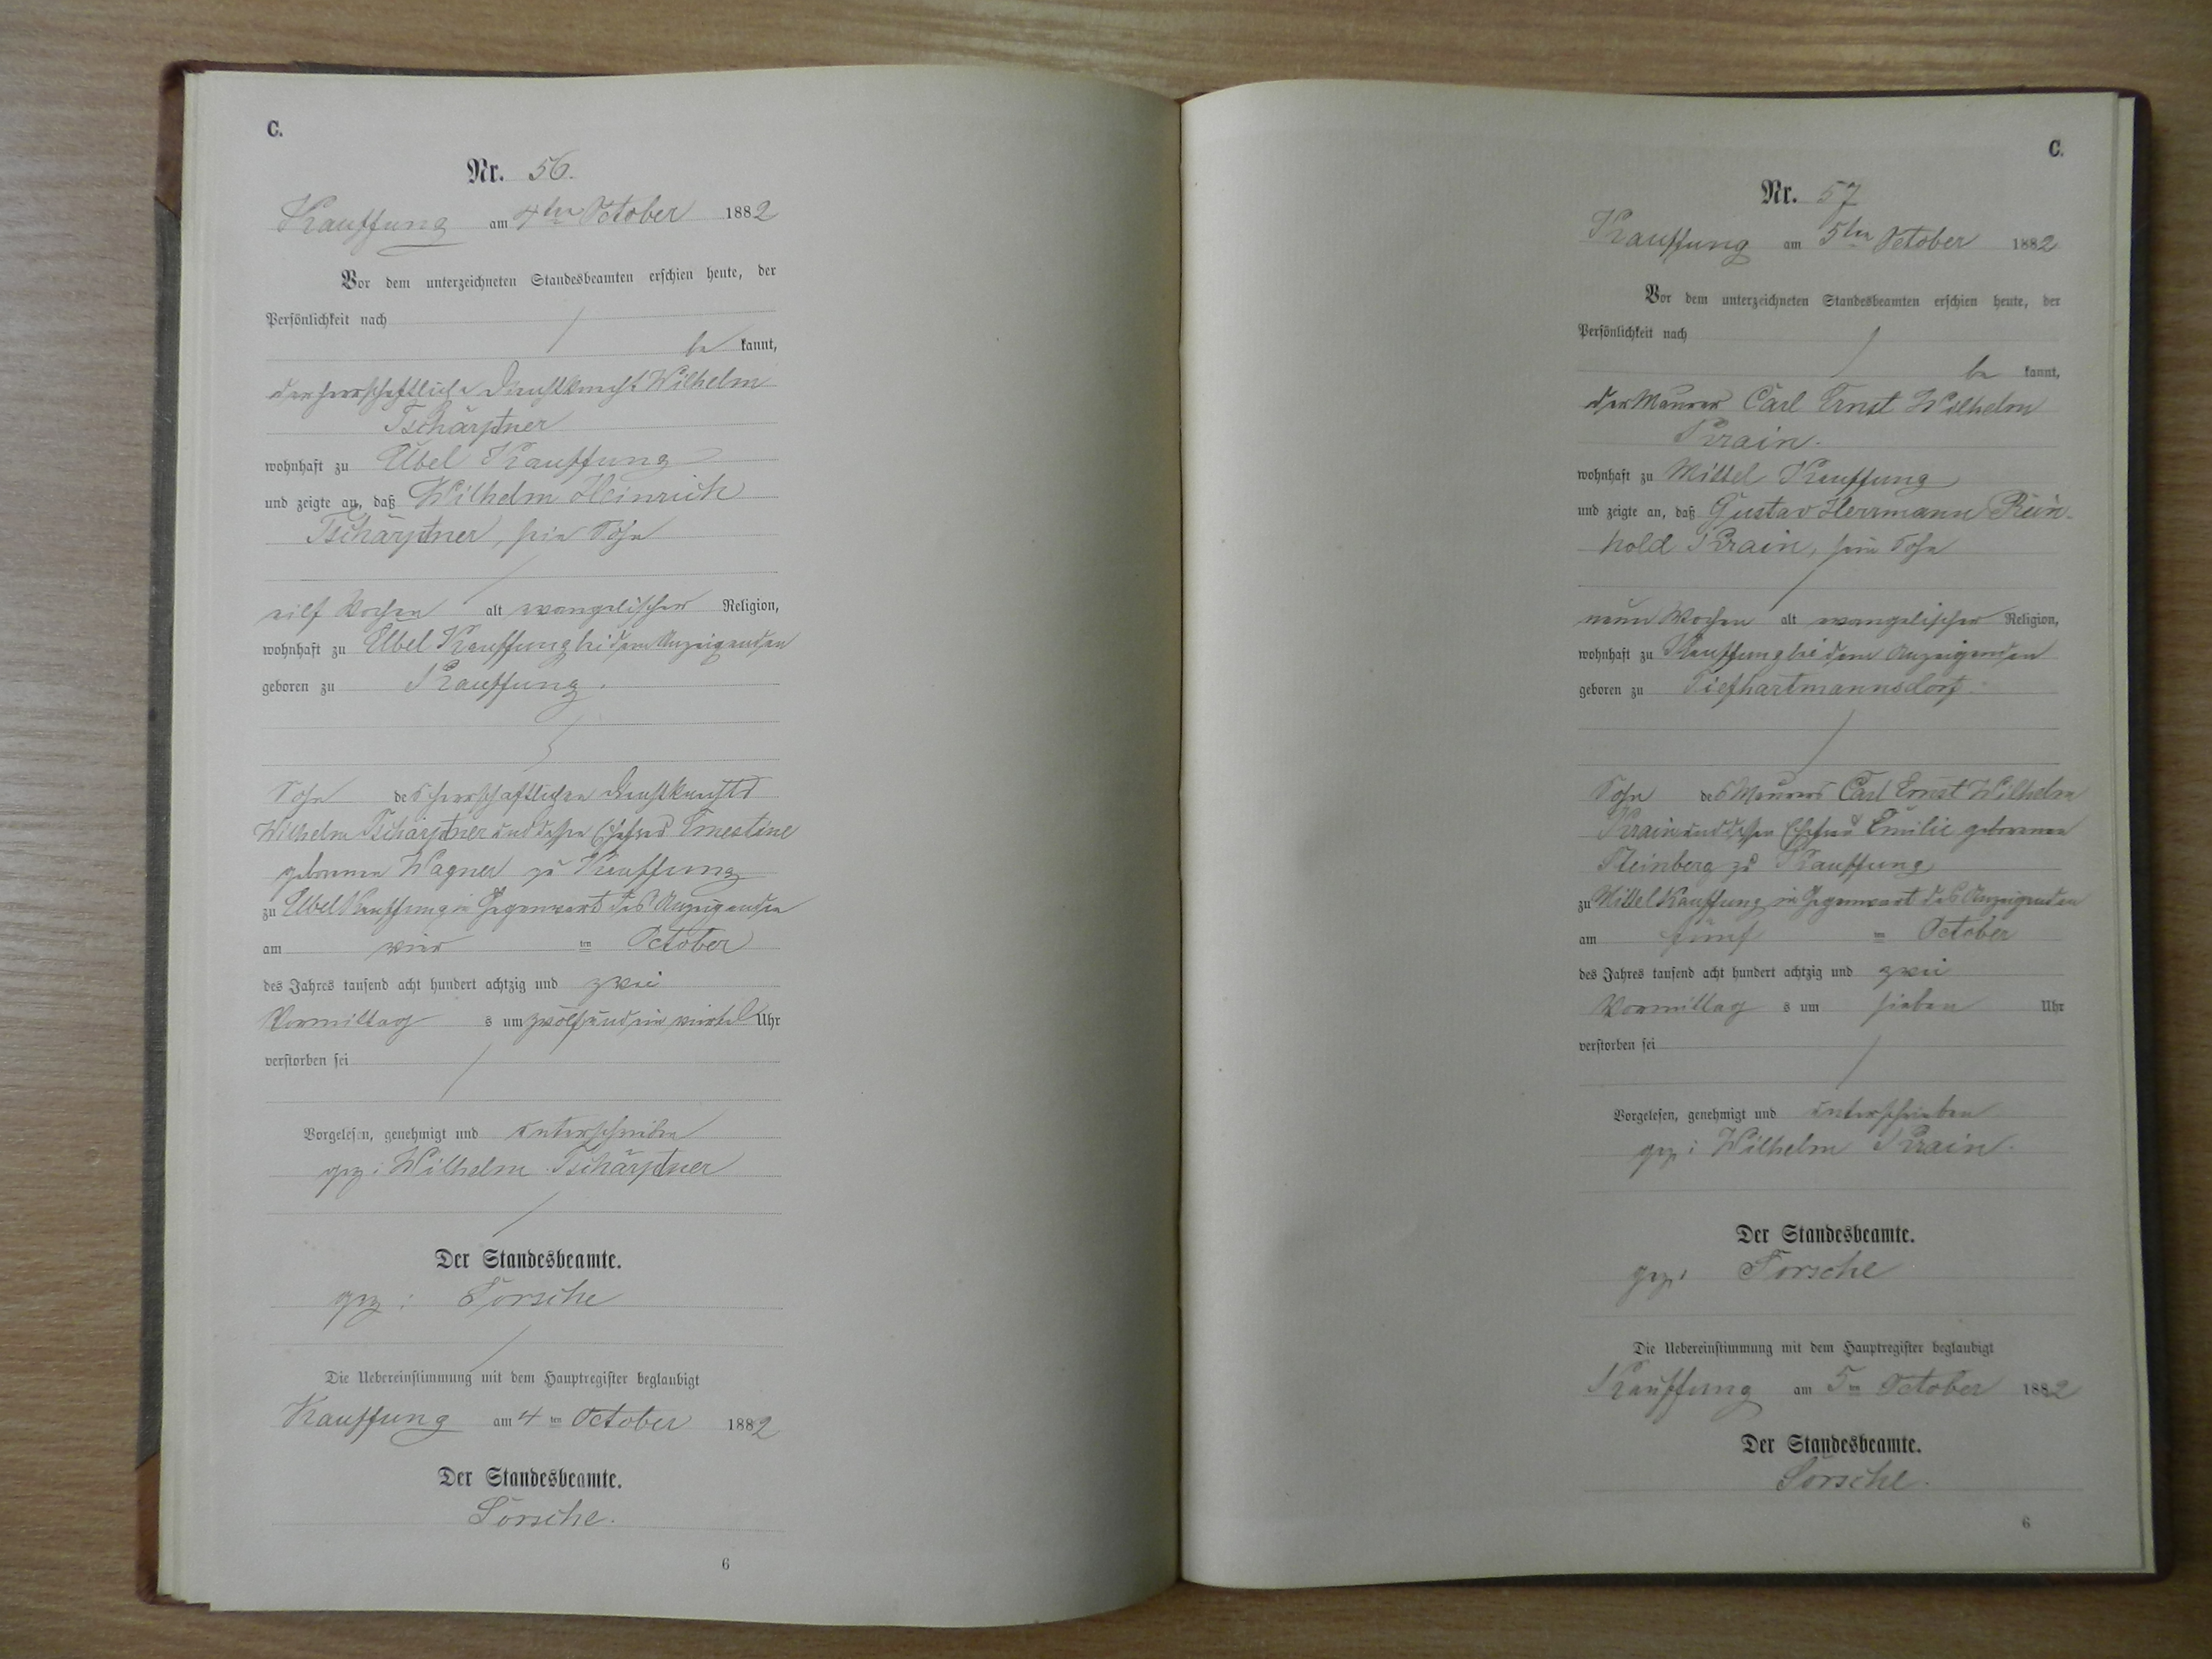 C.
Nr. 56.
Kauffung am 4ten October 1882
Vor dem unterzeichneten Standesbeamten erschien heute, der
Persönlichkeit nach
be kannt,
der herrschaftliche Dienstknecht Wilhelm
Tschärptner
wohnhaft zu Elbel Kauffung
und zeigte an, daß Wilhelm Heinrich
Tschärptner, sein Sohn
eilf Wochen alt evangelischer Religion,
wohnhaft zu Elbel Kauffung bei dem Anzeigenden
geboren zu Kauffung.
Sohn des herrschaftlichen Dienstknechts
Wilhelm Tschärptner und dessen Ehefrau Ernestine
geborenen Wagner zu Kauffung
zu Elbel Kauffung in Gegenwart des Anzeigenden
am vier ten October
des Jahres tausend acht hundert achtzig und zwei
Vormittag s um zwölf und ein viertel Uhr
verstorben sei
Vorgelesen, genehmigt und unterschrieben
gez: Wilhelm Tschärptner
Der Standesbeamte.
gez:
Die Uebereinstimmung mit dem Hauptregister beglaubigt
Kauffung am 4 ten October 1882
Der Standesbeamte.
6
C.
Nr. 57
Kauffung am 5ten October 1882
Vor dem unterzeichneten Standesbeamten erschien heute, der
Persönlichkeit nach
be kannt,
der Maurer Carl Ernst Wilhelm
Krain.
wohnhaft zu Mittel Kauffung
und zeigte an, daß Gustav Herrmann Rein-
hold Krain, sein Sohn
neun Wochen alt evangelischer Religion,
wohnhaft zu Kauffung bei dem Anzeigenden
geboren zu Tiefhartmannsdorf.
Sohn des Maurers Carl Ernst Wilhelm
Krain und dessen Ehefrau Emilie geborenen
Steinberg zu Kauffung
zu Mittel Kauffung in Gegenwart des Anzeigenden
am fünf ten October
des Jahres tausend acht hundert achtzig und zwei
Vormittag s um sieben Uhr
verstorben sei
Vorgelesen, genehmigt und unterschrieben
gez: Wilhelm Krain.
Der Standesbeamte.
gez:
Die Uebereinstimmung mit dem Hauptregister beglaubigt
Kauffung am 5 ten October 1882
Der Standesbeamte.
6